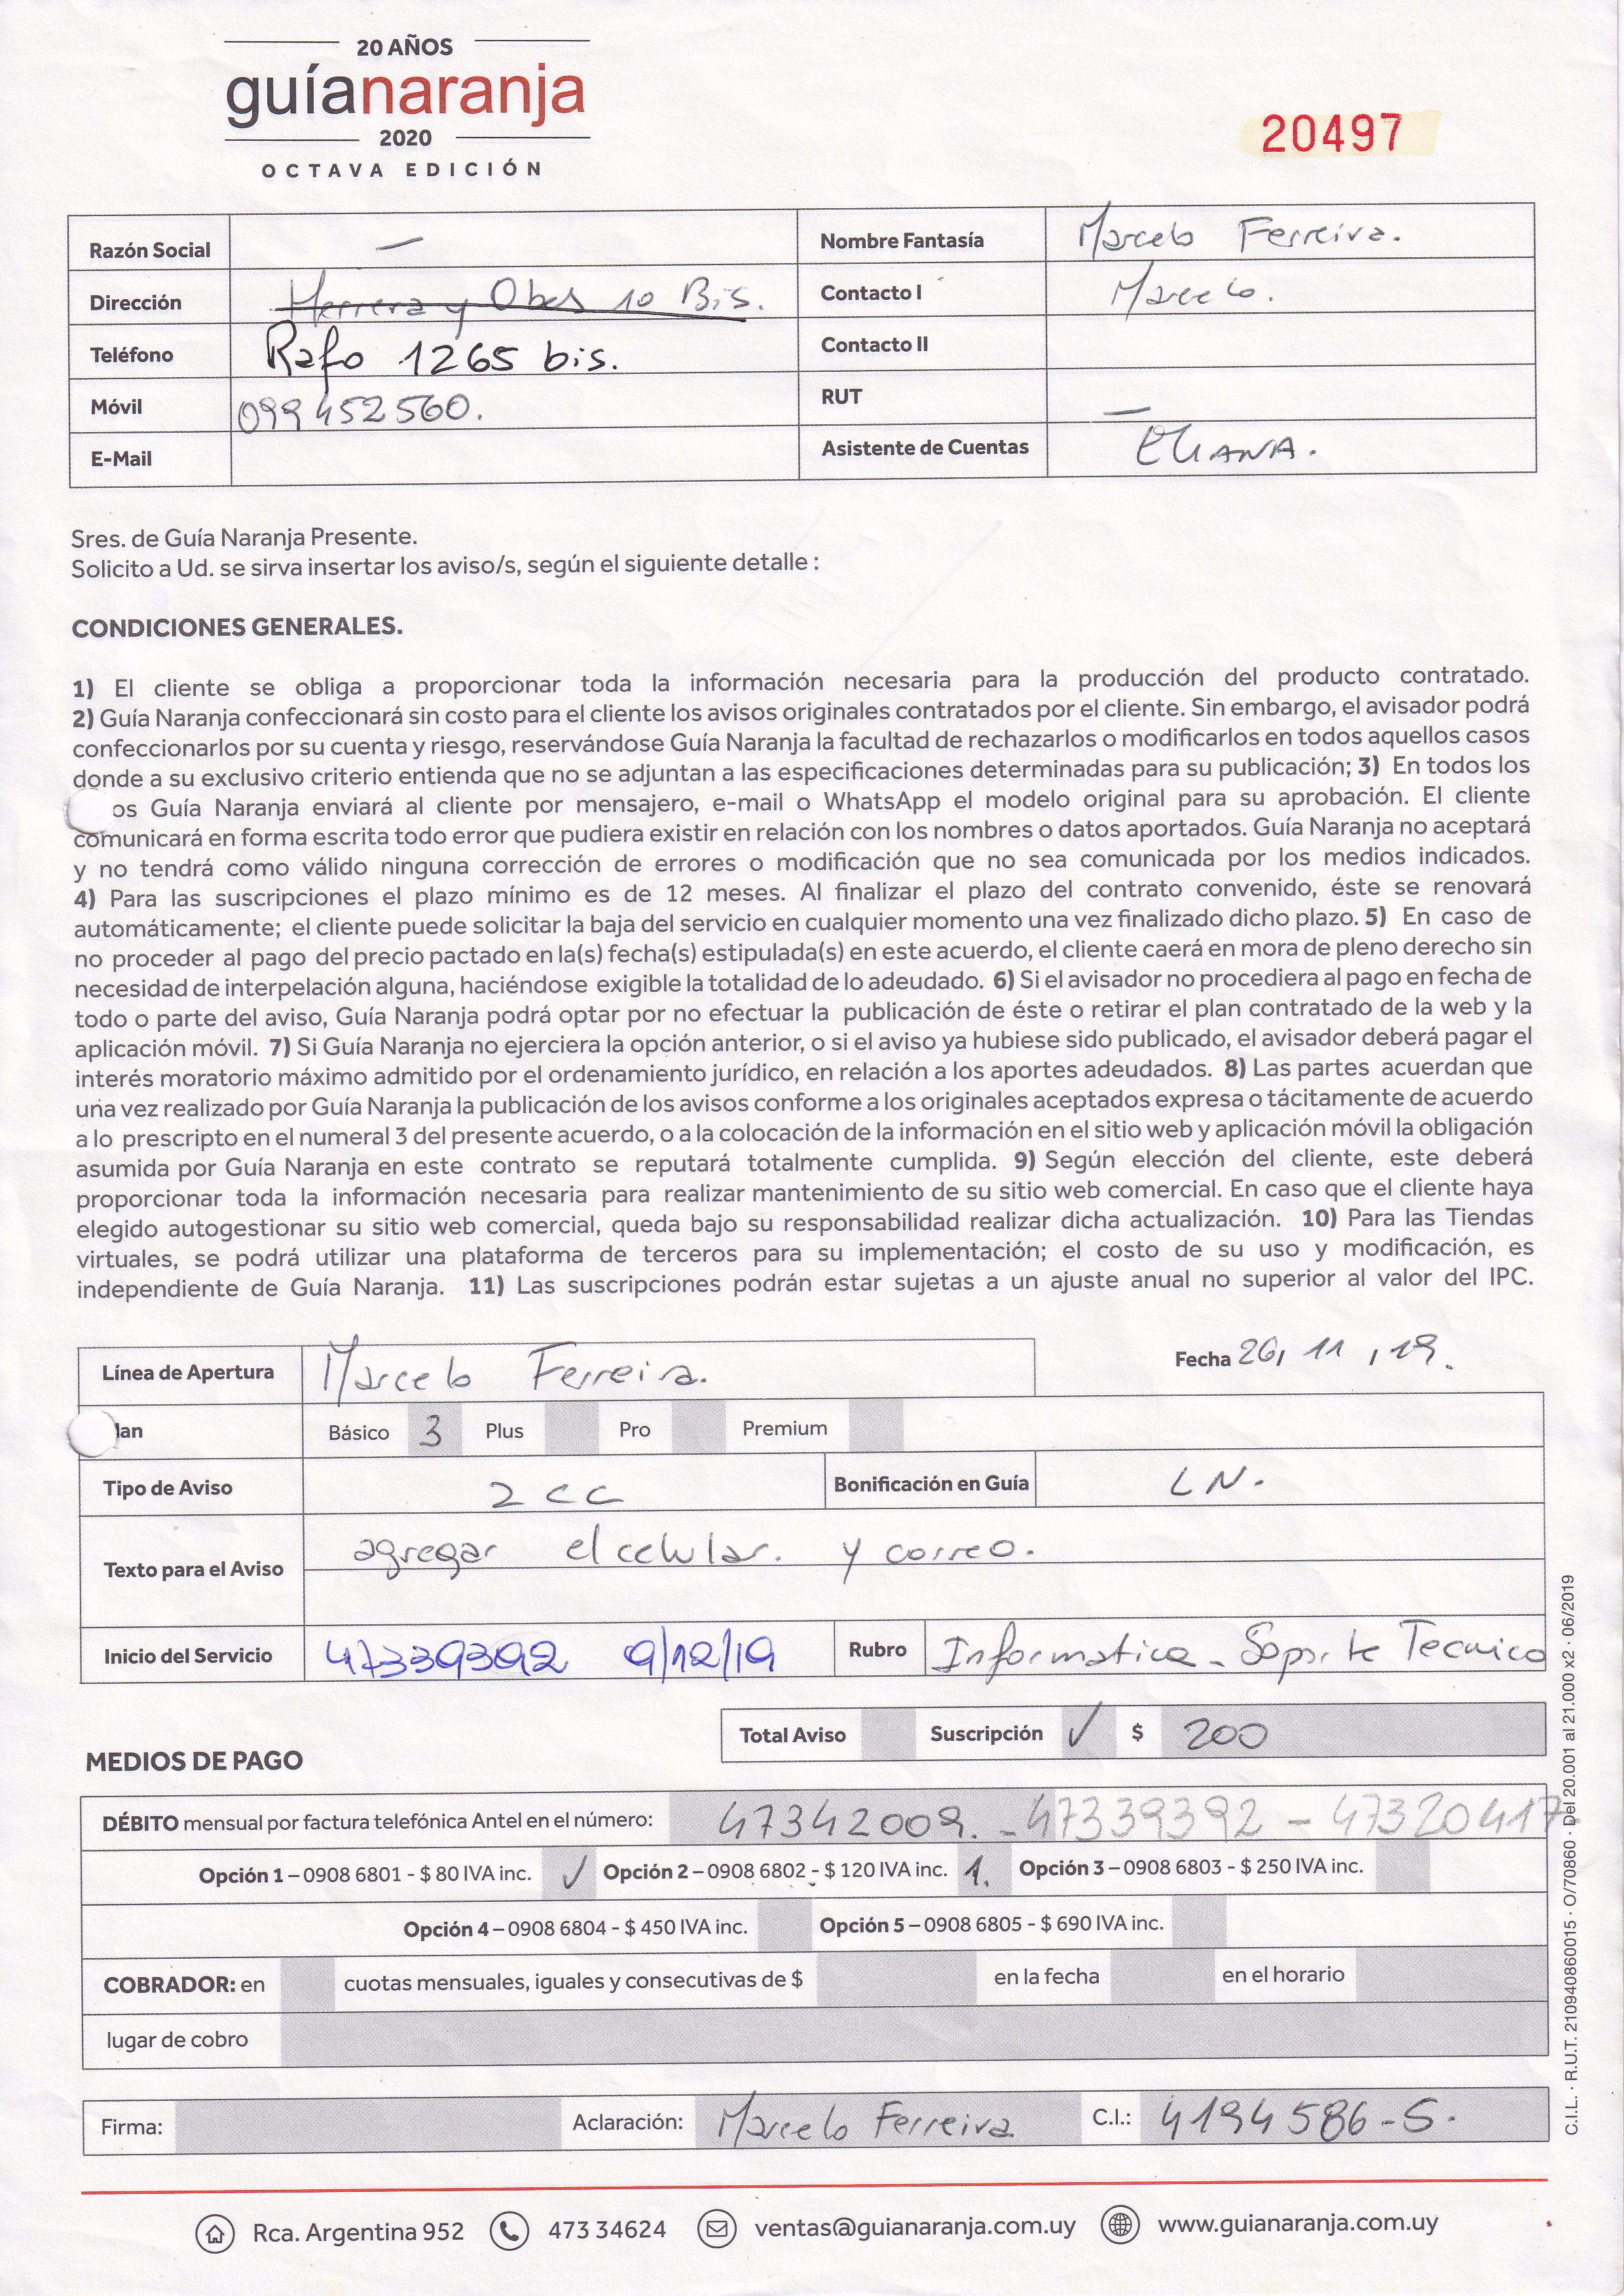 20 AÑOS
guíanaranja
2020
OCTAVA EDICIÓN
20497
Razón Social — Nombre Fantasía Marcelo Ferreira.
Dirección Herrera y Obes 10 Bis. Contacto I Marcelo.
Teléfono Rafo 1265 bis. Contacto II
Móvil 099452560. RUT —
E-Mail Asistente de Cuentas ELIANA.
Sres. de Guía Naranja Presente.
Solicito a Ud. se sirva insertar los aviso/s, según el siguiente detalle :
CONDICIONES GENERALES.
1) El cliente se obliga a proporcionar toda la información necesaria para la producción del producto contratado.
2) Guía Naranja confeccionará sin costo para el cliente los avisos originales contratados por el cliente. Sin embargo, el avisador podrá
confeccionarlos por su cuenta y riesgo, reservándose Guía Naranja la facultad de rechazarlos o modificarlos en todos aquellos casos
donde a su exclusivo criterio entienda que no se adjuntan a las especificaciones determinadas para su publicación; 3) En todos los
os Guía Naranja enviará al cliente por mensajero, e-mail o WhatsApp el modelo original para su aprobación. El cliente
comunicará en forma escrita todo error que pudiera existir en relación con los nombres o datos aportados. Guía Naranja no aceptará
y no tendrá como válido ninguna corrección de errores o modificación que no sea comunicada por los medios indicados.
4) Para las suscripciones el plazo mínimo es de 12 meses. Al finalizar el plazo del contrato convenido, éste se renovará
automáticamente; el cliente puede solicitar la baja del servicio en cualquier momento una vez finalizado dicho plazo. 5) En caso de
no proceder al pago del precio pactado en la(s) fecha(s) estipulada(s) en este acuerdo, el cliente caerá en mora de pleno derecho sin
necesidad de interpelación alguna, haciéndose exigible la totalidad de lo adeudado. 6) Si el avisador no procediera al pago en fecha de
todo o parte del aviso, Guía Naranja podrá optar por no efectuar la publicación de éste o retirar el plan contratado de la web y la
aplicación móvil. 7) Si Guía Naranja no ejerciera la opción anterior, o si el aviso ya hubiese sido publicado, el avisador deberá pagar el
interés moratorio máximo admitido por el ordenamiento jurídico, en relación a los aportes adeudados. 8) Las partes acuerdan que
una vez realizado por Guía Naranja la publicación de los avisos conforme a los originales aceptados expresa o tácitamente de acuerdo
a lo prescripto en el numeral 3 del presente acuerdo, o a la colocación de la información en el sitio web y aplicación móvil la obligación
asumida por Guía Naranja en este contrato se reputará totalmente cumplida. 9) Según elección del cliente, este deberá
proporcionar toda la información necesaria para realizar mantenimiento de su sitio web comercial. En caso que el cliente haya
elegido autogestionar su sitio web comercial, queda bajo su responsabilidad realizar dicha actualización. 10) Para las Tiendas
virtuales, se podrá utilizar una plataforma de terceros para su implementación; el costo de su uso y modificación, es
independiente de Guía Naranja. 11) Las suscripciones podrán estar sujetas a un ajuste anual no superior al valor del IPC.
Línea de Apertura Marcelo Ferreira. Fecha 26, 11 , 19.
lan Básico 3 Plus Pro Premium
Tipo de Aviso 2 CC Bonificación en Guía LN.
Texto para el Aviso agregar el celular. y correo.
Inicio del Servicio 47339392 9/12/19 Rubro Informatica - Soporte Tecnico
Total Aviso Suscripción ✓ $ 200
MEDIOS DE PAGO
DÉBITO mensual por factura telefónica Antel en el número: 47342009. - 47339392 - 47320417.
Opción 1 – 0908 6801 - $ 80 IVA inc. ✓ Opción 2 – 0908 6802 - $ 120 IVA inc. 1. Opción 3 – 0908 6803 - $ 250 IVA inc.
Opción 4 – 0908 6804 - $ 450 IVA inc. Opción 5 – 0908 6805 - $ 690 IVA inc.
COBRADOR: en cuotas mensuales, iguales y consecutivas de $ en la fecha en el horario
lugar de cobro
Firma: Aclaración: Marcelo Ferreira C.I.: 4194586-5.
Rca. Argentina 952 473 34624 ventas@guianaranja.com.uy www.guianaranja.com.uy
C.I.L. · R.U.T. 210940860015 · O/70860 · Del 20.001 al 21.000 x2 · 06/2019